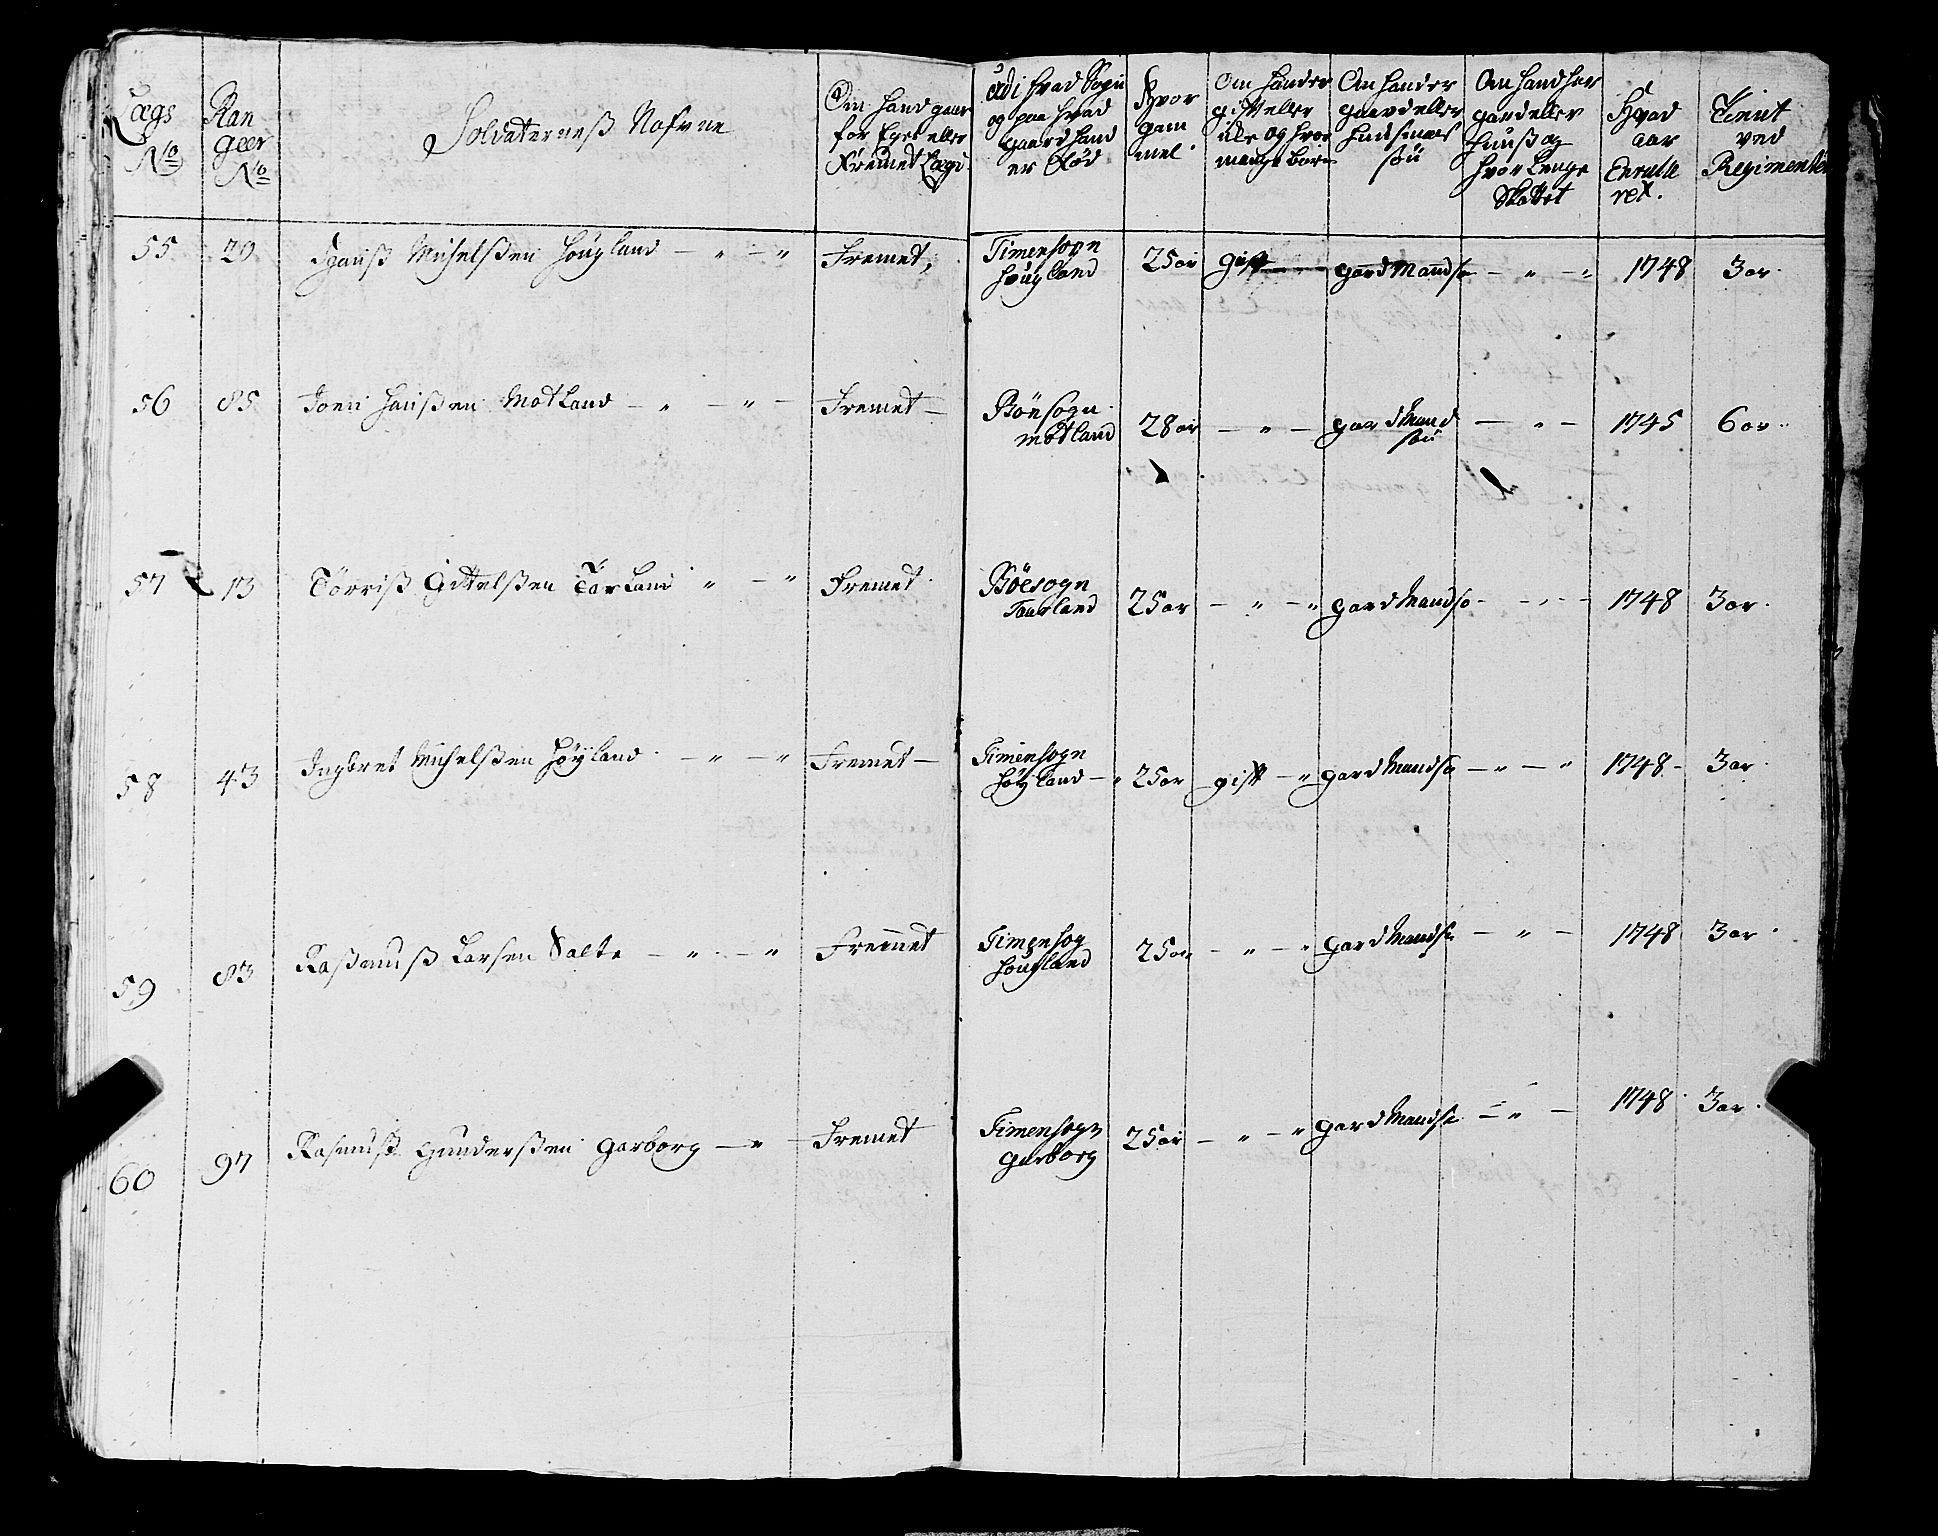 Lægs No | Ran geer No | Soldaterneß Nafvne | Om hand gaar for Eget eller Fremet Lægd | og paa hvad gaard hand er Fød | Hvor gam mel | Om hand er gift eller ikke og hvor mange børn | Om hand er gaard eller huusmans søn | Om hand har gard eller huuß og hvor Lenge Skattet | Hvad aar Enrulle ret. | Tient ved Regimentet
55 | 20 | Hanß Michelßen Høugland | Fremet, | Timensogn Høugland | 25 aar | gift | gard Mandsø | 1748 | 3 ar.
56 | 85 | Joen Hanßen Motland | Fremet | Bøesogn motland | 28 ar | gard Mand søn | 1745 | 6 ar.
57 | 13 | Tørriß Gittelßen Tarland | Fremet. | Bøesogn Taarland | 25 ar | gard Mandsø | 1748 | 3 ar.
58 | 43 | Ingbret Michelßen Høyland | Fremet | Timensogn Høyland | 25 ar | gift | gard Mandsø | 1748 | 3 ar.
59 | 83 | Raßmuß Larsen Salte | Fremet | Timensog Høugland | 25 ar | gard Mandsø | 1748 | 3 ar.
60 | 97 | Rasmuß Gunderßen Garborg | Fremet | Timensogn Garborg | 25 ar | gard Mandsø | 1748 | 3 ar.